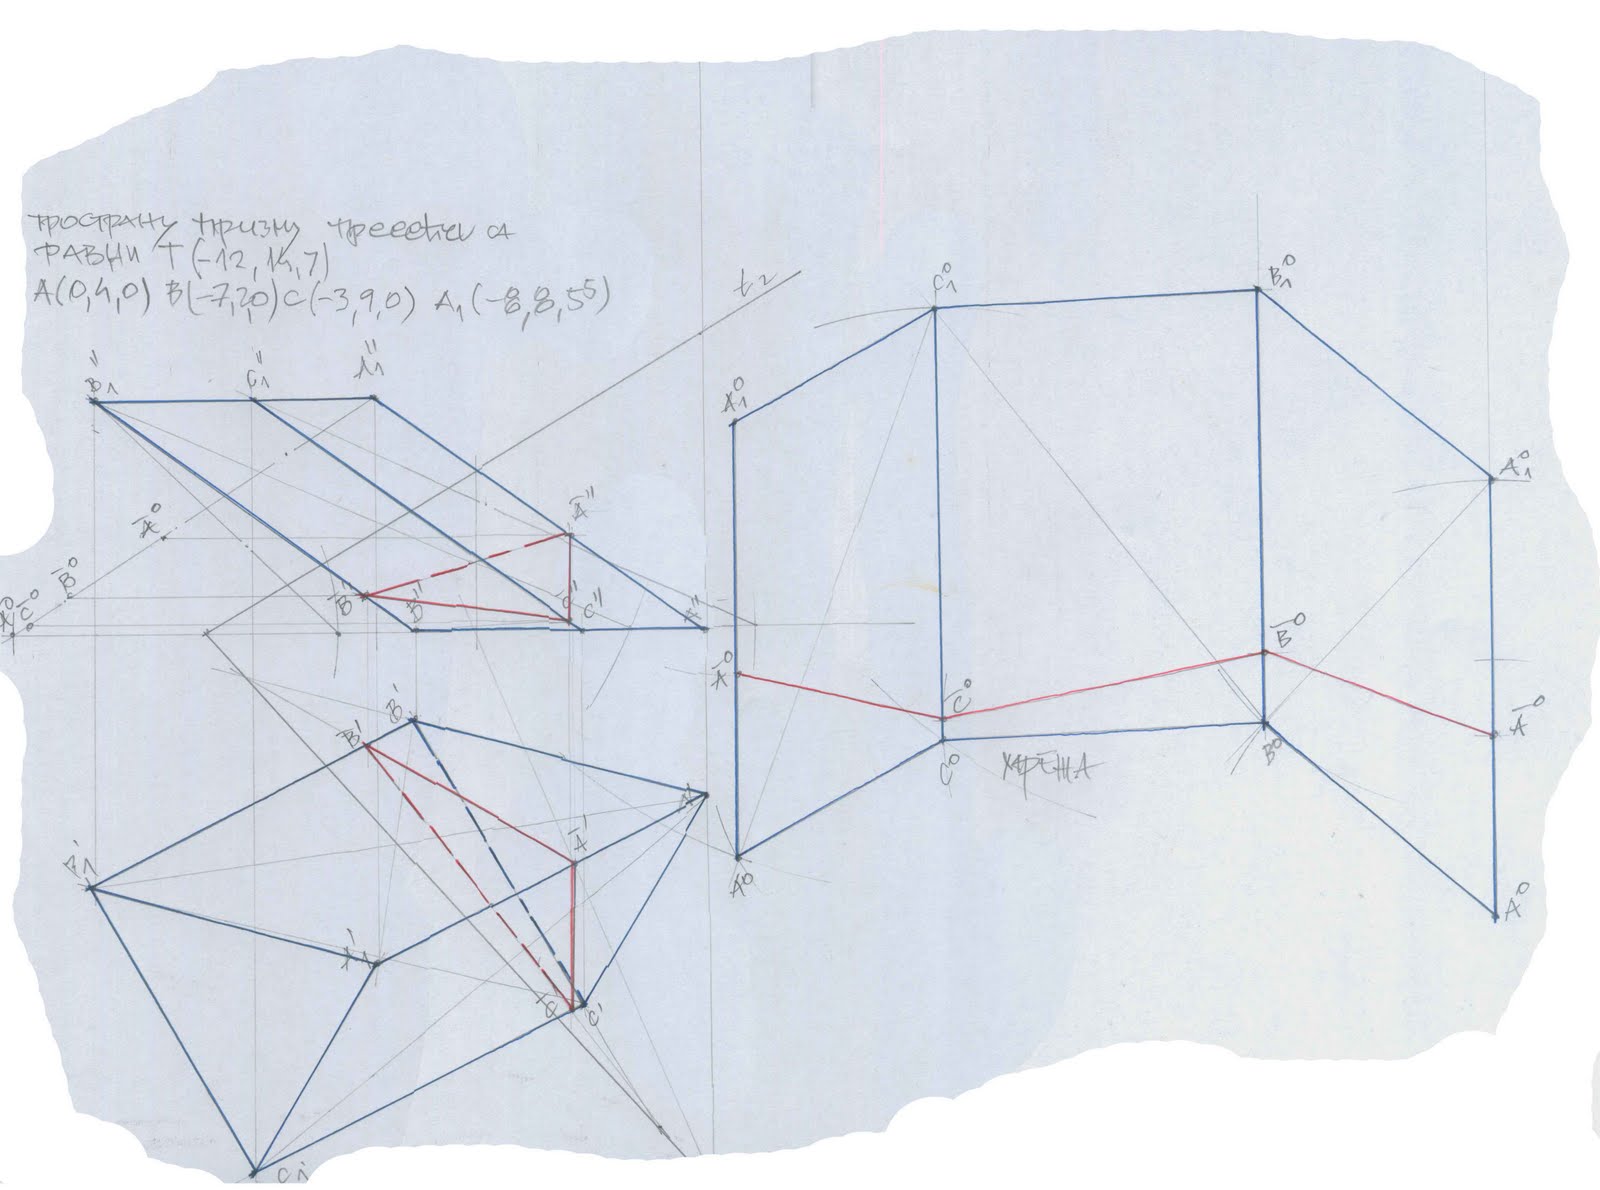 ТРОСТРАНУ ПРИЗМУ ПРЕСЕЋИ СА
РАВНИ Т (-12, 14, 7)
А(0,4,0) В(-7,2,0) С(-3,9,0) А₁(-8,8,5⁵)
t₂
B₁"
C₁"
A₁"
A̅⁰
B̅⁰
C̅⁰
B̅"
B"
A̅"
C̅"
C"
A"
B̅'
B'
A'
A̅'
B₁'
A₁'
C̅'
C'
C₁'
A₁⁰
C₁⁰
B₁⁰
A₁⁰
A̅⁰
C̅⁰
B̅⁰
A̅⁰
A⁰
C⁰
B⁰
A⁰
МРЕЖА